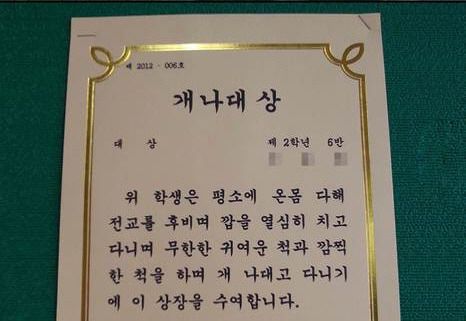 제 2012 - 006호
개나대상
대 상 제 2학년 6반
위 학생은 평소에 온몸 다해
전교를 후비며 깝을 열심히 치고
다니며 무한한 귀여운 척과 깜찍
한 척을 하며 개 나대고 다니기
에 이 상장을 수여합니다.